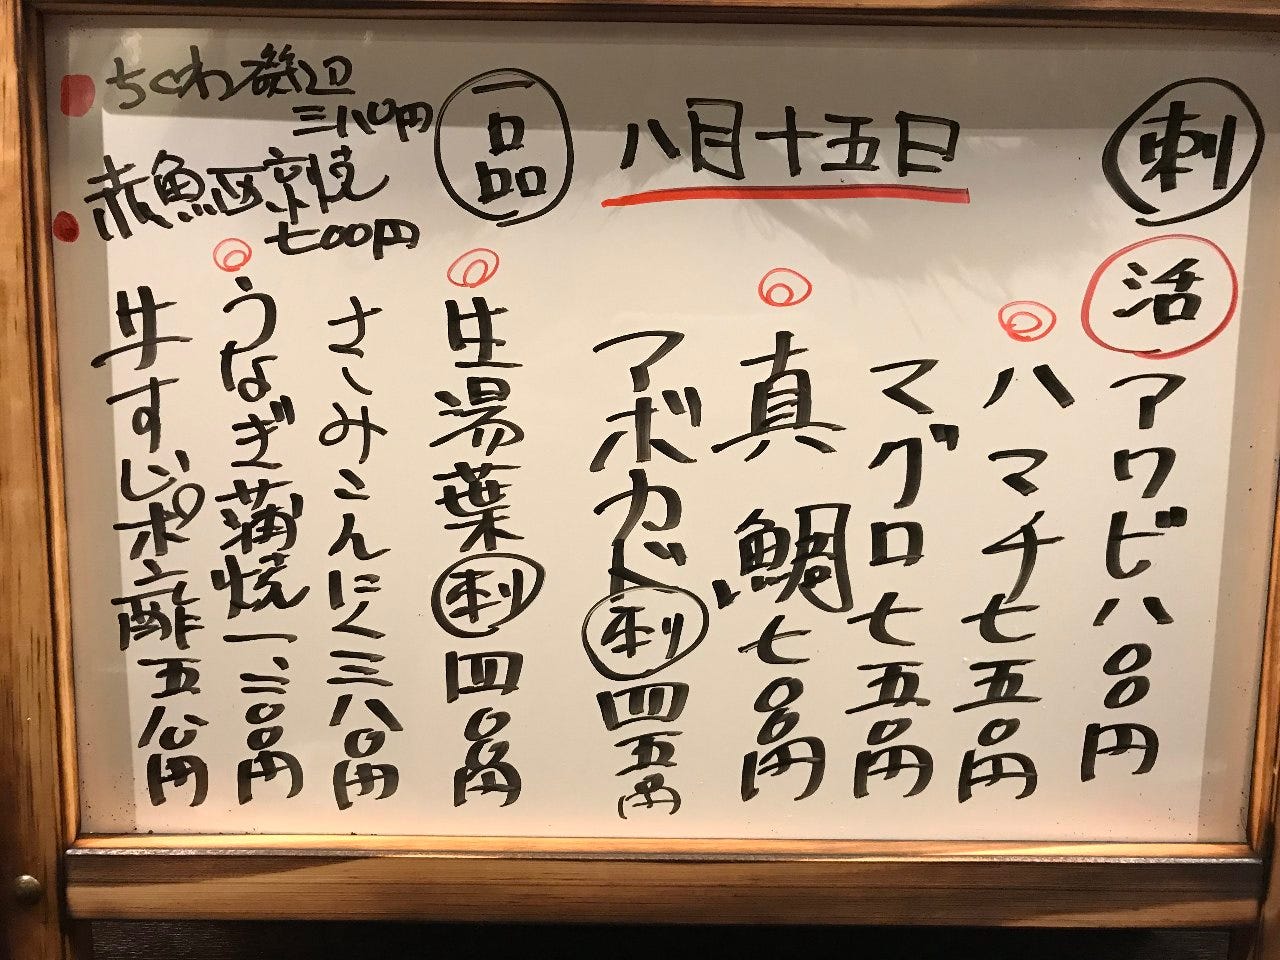 八月十五日
刺
活アワビ八〇〇円
ハマチ七五〇円
マグロ七五〇円
真鯛七〇〇円
アボカド刺四五〇円
一品
生湯葉刺四〇〇円
さしみこんにゃく三八〇円
うなぎ蒲焼一、二〇〇円
牛すじポン酢五八〇円
ちくわ磯辺
三八〇円
赤魚西京焼
七〇〇円